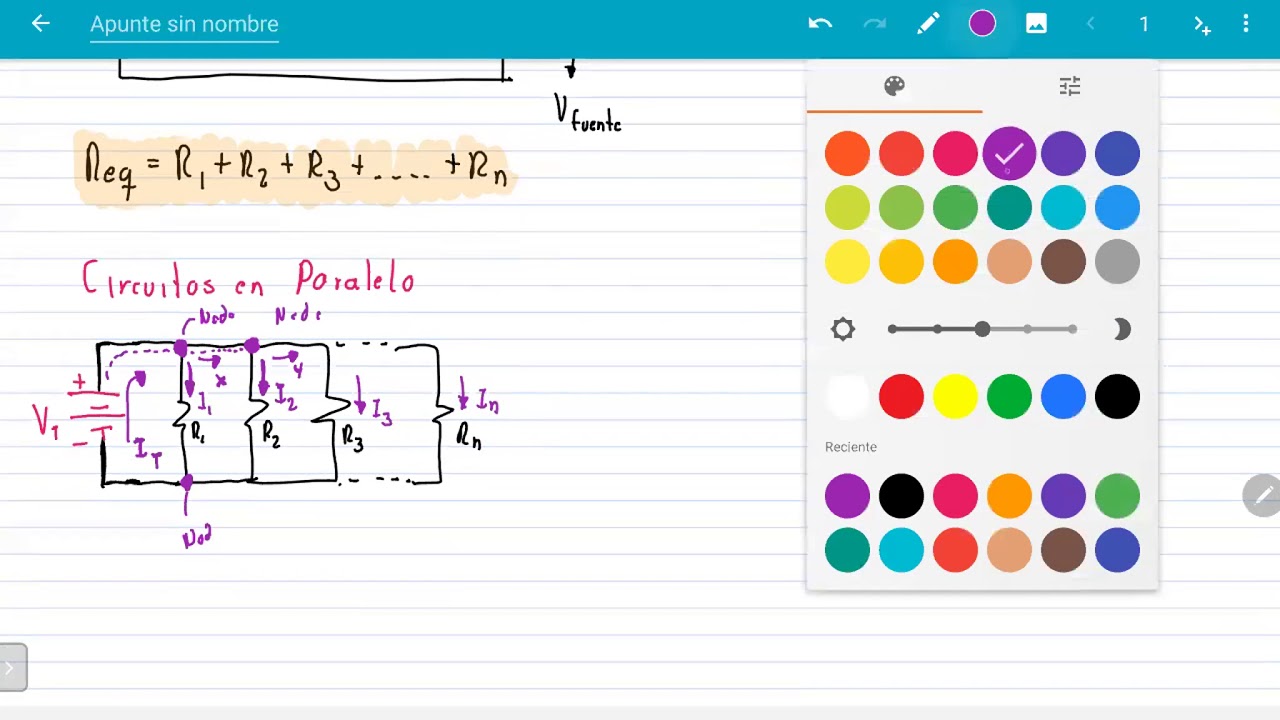 Apunte sin nombre
1
V fuente
Req = R1 + R2 + R3 + .... + Rn
Circuitos en Paralelo
Nodo Nodo
x y
+
VT I1 I2 I3 In
R1 R2 R3 Rn
-
IT
Nod
Reciente